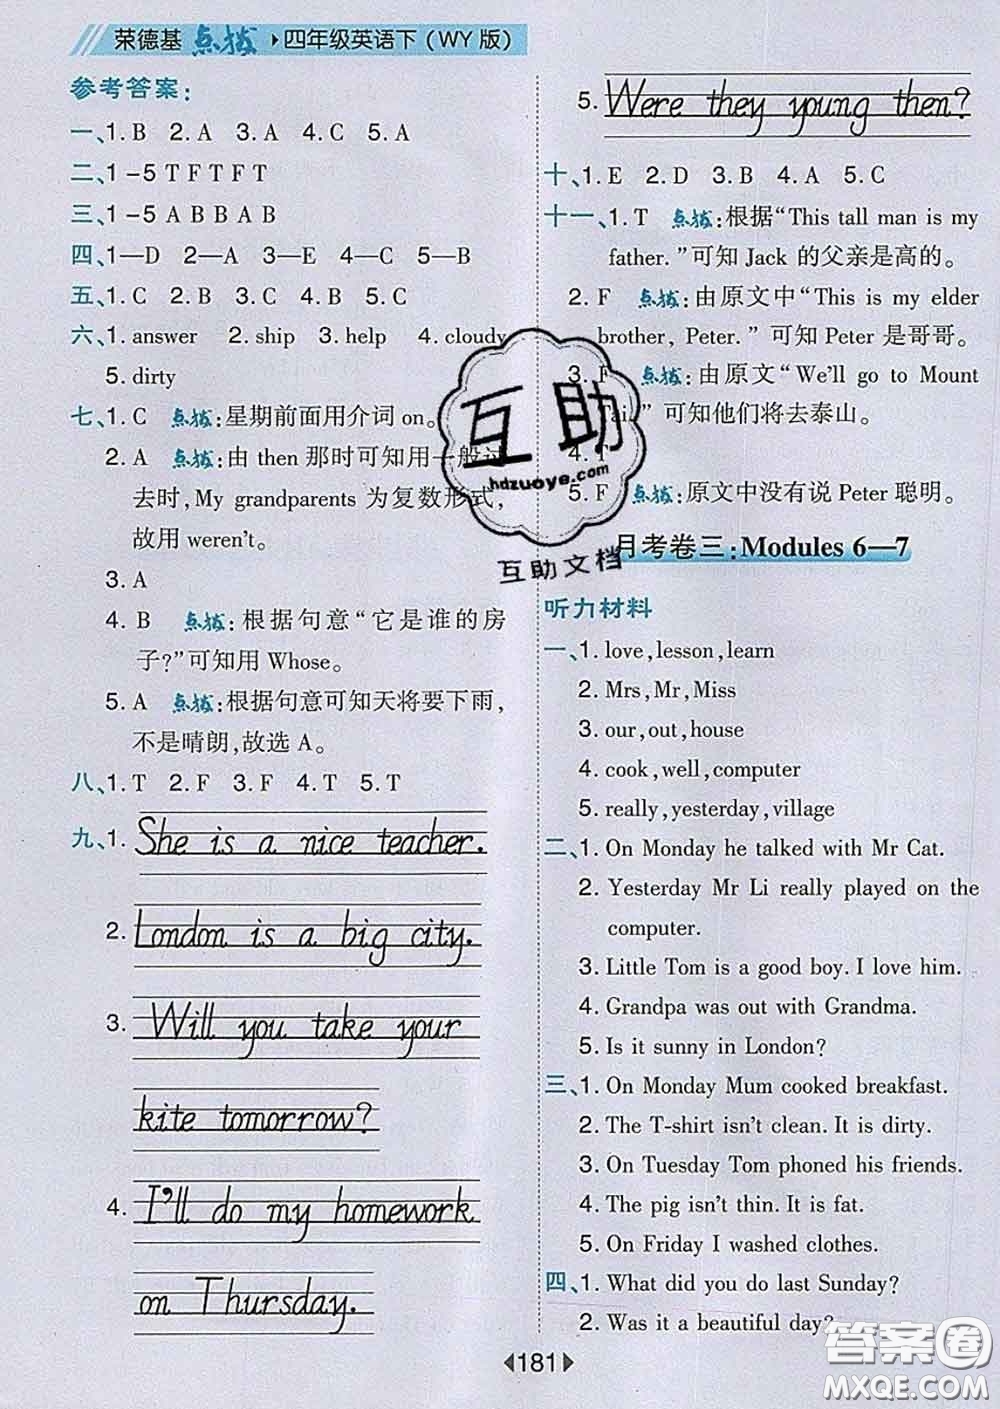 荣德基 点拨 ▸四年级英语下（WY版）
参考答案:
一、1. B 2. A 3. A 4. C 5. A
二、1-5 T F T F T
三、1-5 A B B A B
四、1—D 2—A 3—E 4—C 5—B
五、1. C 2. B 3. C 4. B 5. C
六、1. answer 2. ship 3. help 4. cloudy
5. dirty
七、1. C 点拨:星期前面用介词on。
2. A 点拨:由 then 那时可知用一般过
去时, My grandparents 为复数形式,
故用 weren't。
3. A
4. B 点拨:根据句意“它是谁的房
子?”可知用 Whose。
5. A 点拨:根据句意可知天将要下雨,
不是晴朗,故选 A。
八、1. T 2. F 3. F 4. T 5. T
九、1. She is a nice teacher.
2. London is a big city.
3. Will you take your
kite tomorrow?
4. I'll do my homework
on Thursday.
5. Were they young then?
十、1. E 2. D 3. B 4. A 5. C
十一、1. T 点拨:根据“This tall man is my
father.”可知 Jack 的父亲是高的。
2. F 点拨:由原文中“This is my elder
brother, Peter.”可知 Peter 是哥哥。
3. F 点拨:由原文“We'll go to Mount
Tai.”可知他们将去泰山。
4. T
5. F 点拨:原文中没有说 Peter 聪明。
月考卷三: Modules 6—7
听力材料
一、1. love, lesson, learn
2. Mrs, Mr, Miss
3. our, out, house
4. cook, well, computer
5. really, yesterday, village
二、1. On Monday he talked with Mr Cat.
2. Yesterday Mr Li really played on the
computer.
3. Little Tom is a good boy. I love him.
4. Grandpa was out with Grandma.
5. Is it sunny in London?
三、1. On Monday Mum cooked breakfast.
2. The T-shirt isn't clean. It is dirty.
3. On Tuesday Tom phoned his friends.
4. The pig isn't thin. It is fat.
5. On Friday I washed clothes.
四、1. What did you do last Sunday?
2. Was it a beautiful day?
181
互助
hdzuoye.com
互助文档
答案圈
MXQE.COM